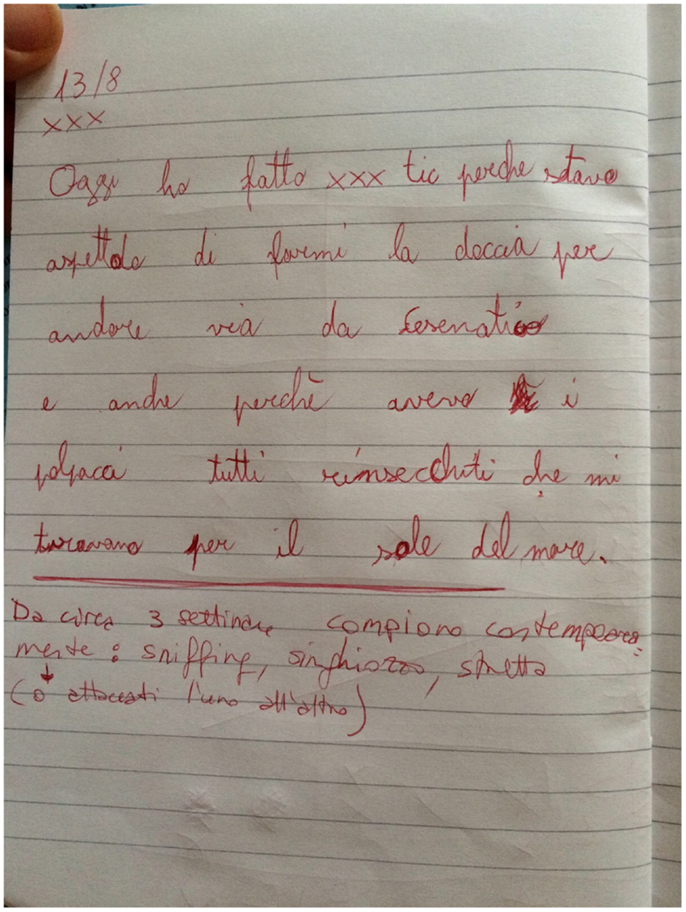 13/8
xxx
Oggi ho fatto xxx tic perche stavo
aspettado di farmi la doccia per
andare via da Cesenatico
e anche perchè avevo i
polpacci tutti rinsecchiti che mi
tiravano per il sole del mare.
Da circa 3 settimane compiono contempora-
mente: sniffing, singhiozzo, stretta
(o attaccati l'uno all'altro)